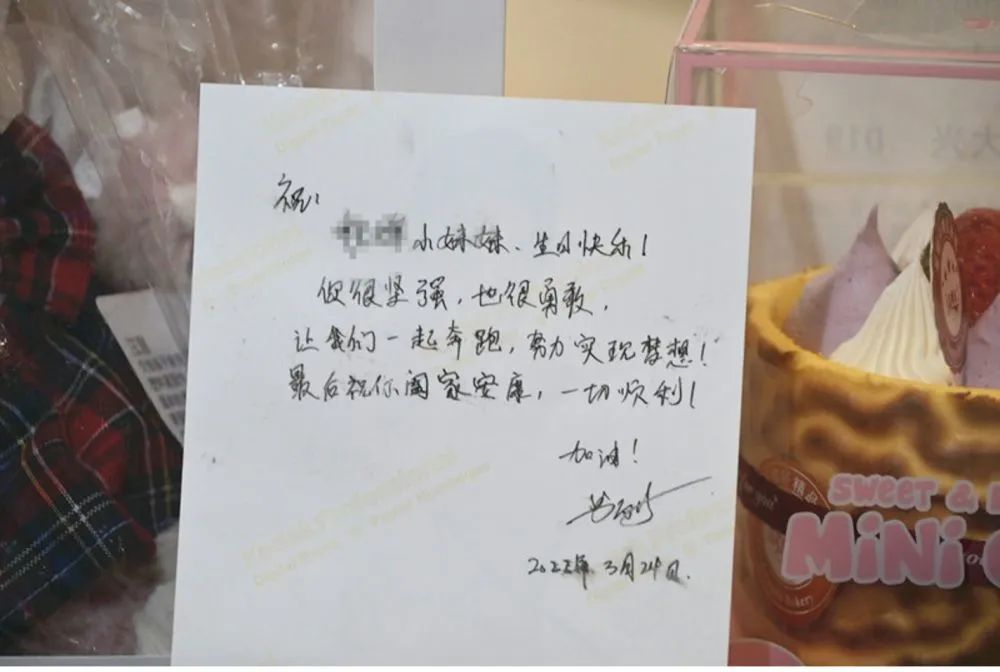 祝!
小妹妹、生日快乐!
你很坚强,也很勇敢,
让我们一起奔跑,努力实现梦想!
最后祝你阖家安康,一切顺利!
加油!
2022年3月24日.
SWEET &
MiNi